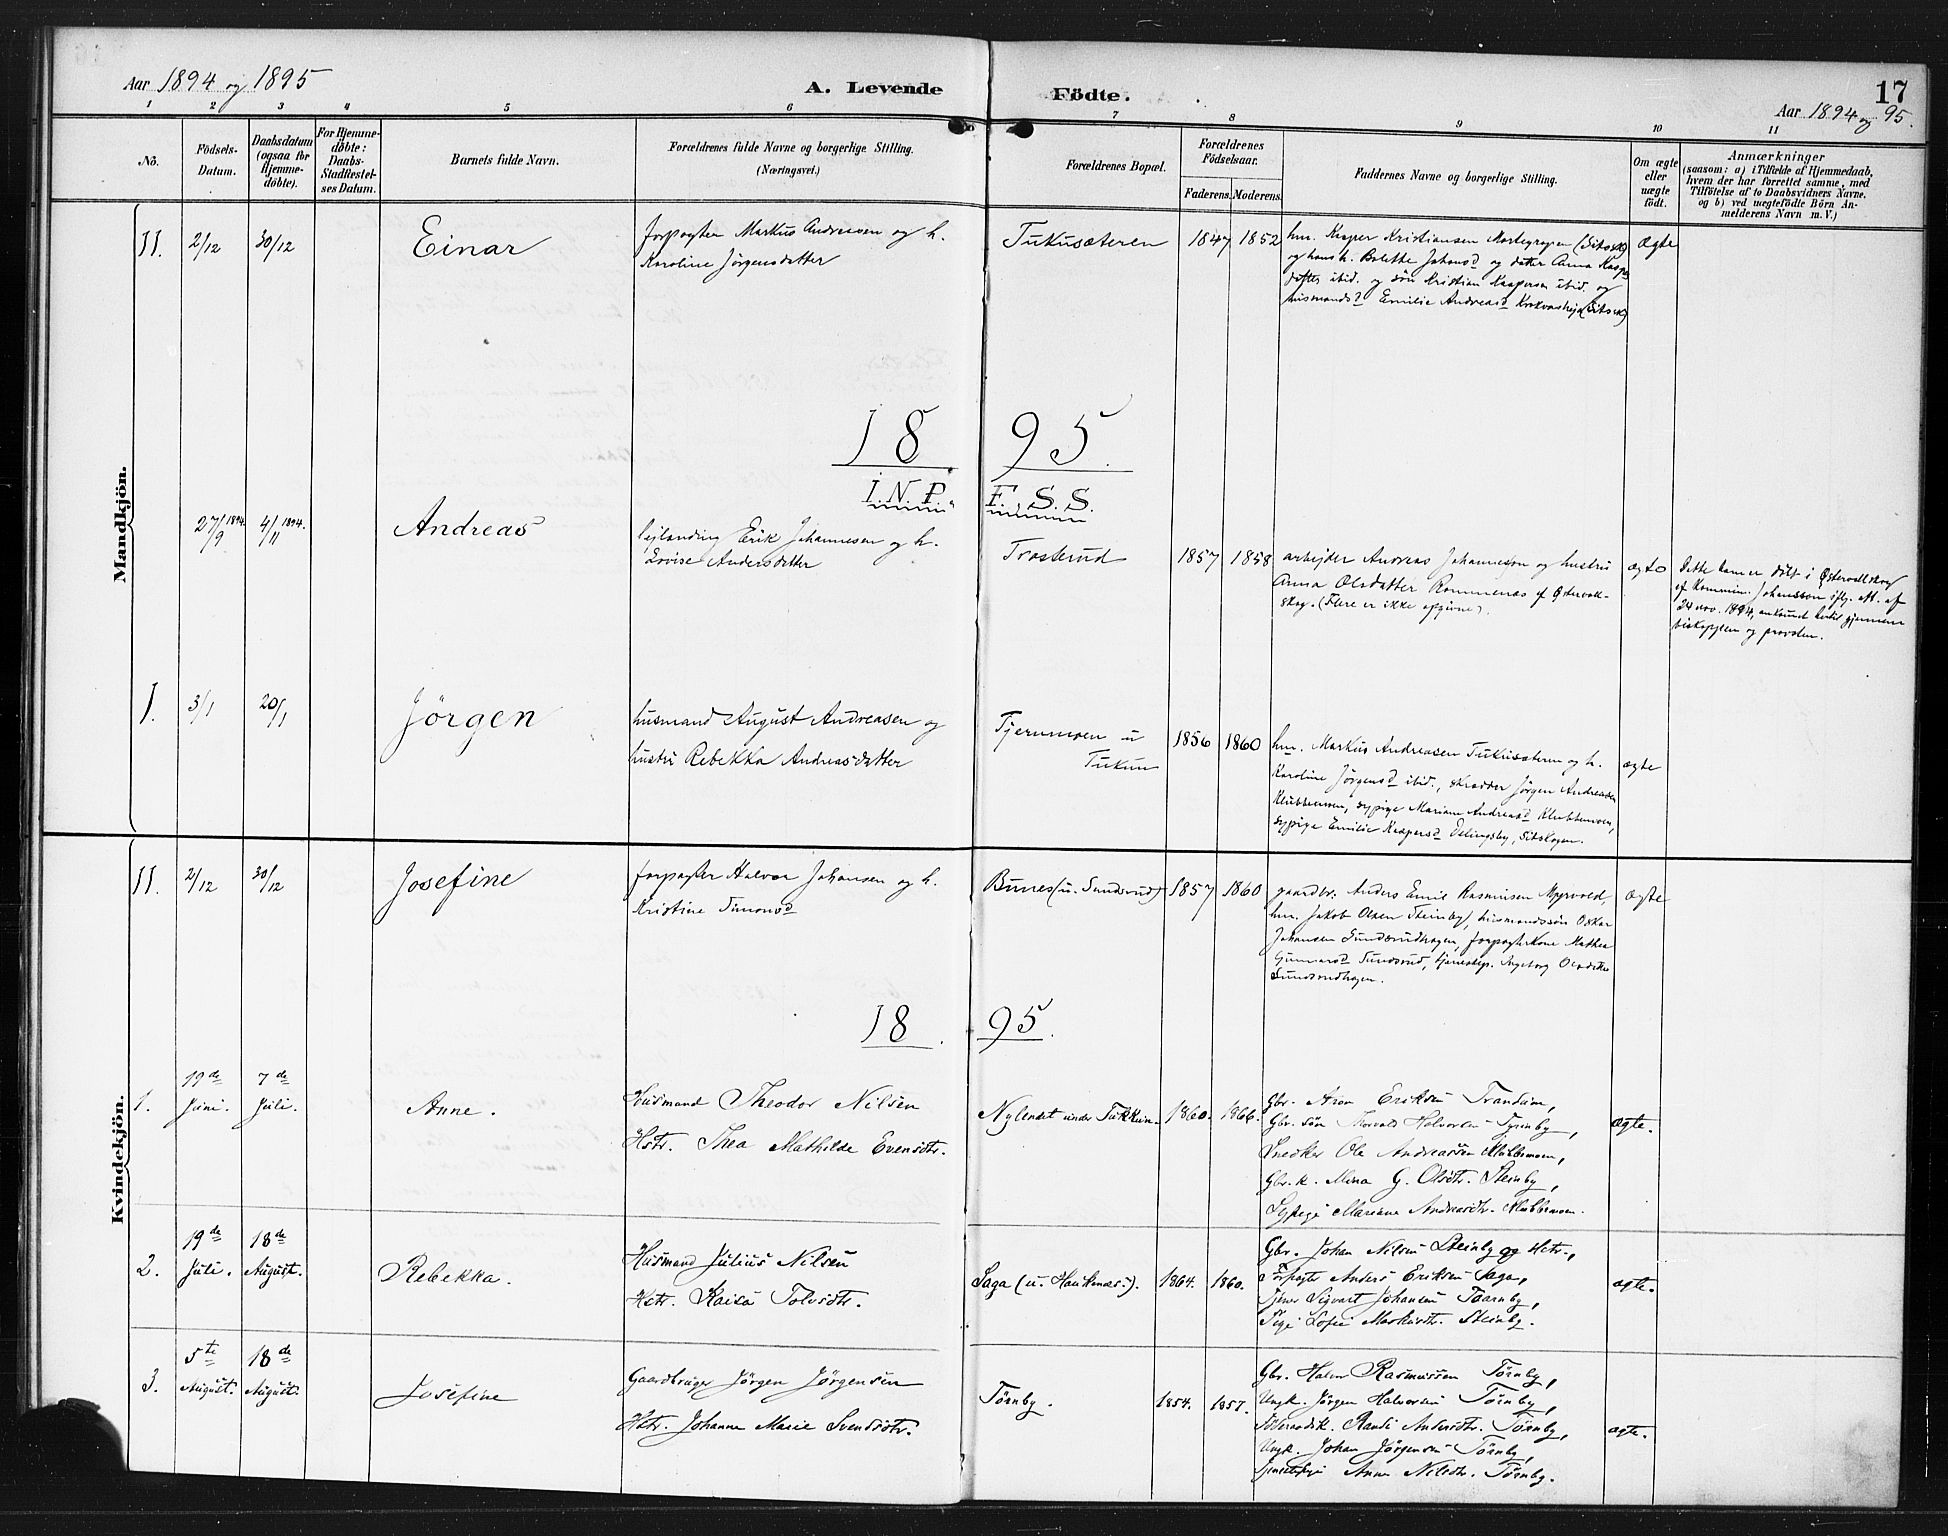 Aar 1894 og 1895
A. Levende
Födte.
17
Aar 1894 og 95.
1 2 3 4 5 6 7 8 9 10 11
No.
Födsels-
Datum.
Daabsdatum
(ogsaa for
Hjemme-
döbte).
For Hjemme-
döbte:
Daabs-
Stadfestel-
ses Datum.
Barnets fulde Navn.
Forældrenes fulde Navne og borgerlige Stilling.
(Næringsvei.)
Forældrenes Bopæl.
Forældrenes
Födselsaar.
Faderens. Moderens.
Faddernes Navne og borgerlige Stilling.
Om ægte
eller
uægte
födt.
Anmærkninger
(saasom: a) i Tilfælde af Hjemmedaab,
hvem der har forrettet samme, med
Tilföielse af to Daabsvidners Navne,
og b) ved uægtefödte Börn An-
melderens Navn m. V.)
Mandkjön.
11. 2/12 30/12 Einar
forpagter Markus Andreasen og h.
Karoline Jørgensdatter
Tukusæteren 1847 1852
hm. Kasper Kristiansen (Sitsk)
og hans h. Bolette Johansd og datter Anna Kasp
datter ibid. og søn Kristian Kaspersen ibid. og
husmandsd Emilie Andreasd (Sitsk)
ægte
18 95.
I. N. P. F. S. S.
27/9 1894. 4/11 1894. Andreas
Erik Johannesen og h.
Lovise Andersdatter
Trosterud 1857 1858
arbejder Andreas Johannesen og hustru
Anna Olsdatter Rommenæs af Østervall-
skog. (Flere er ikke opgivne).
ægte
Dette barn er døbt i Østervallskog
af Kommin. Johansson iflg. att. af
24 nov. 1894, ankomst hertil gjennem
biskoppen og provsten.
1. 3/1 20/1 Jørgen
husmand August Andreasen og
hustru Rebekka Andreasdatter
Tjernmoen u
Tukun
1856 1860
hm. Markus Andreasen Tukusæteren og h.
Karoline Jørgensd ibid., skrædder Jørgen Andreasen
Klubbemoen, sypige Mariane Andreasd Klubbemoen,
sypige Emilie Kaspersd , Sitskogen.
ægte
Kvindekjön.
11. 2/12 30/12 Josefine
forpagter Halvor Johansen og h.
Kristine Simonsd
Bunes (u. Sundsrud) 1857 1860
gaardbr. Anders Emil Rasmussen Myrvold,
hm. Jakob Olsen Steinby, husmandssøn Oskar
Johansen Sundsrudhagen, forpagterkone Mathea
Gunnarsd Sundsrud, tjenestep. Ingeborg Olsdatter
Sundsrudhagen.
ægte
18. 95.
1. 19de Juni. 7de Juli. Anne.
Husmand Theodor Nilsen
Hstr. Thea Mathilde Evensdtr.
Nylendet under Tukkun. 1860. 1866.
Gbr. Aron Eriksen Trandum,
Gbr. søn Thorvald Halvorsen Tyrinby,
Snedker Ole Andreassen Klubbemoen,
Gbr.k. Mina G. Olsdtr. Steinby,
Sypige Mariane Andreasdtr. Klubbemoen.
ægte.
2. 19de Juli. 18de August. Rebekka.
Husmand Julius Nilsen
Hstr. Kaisa Tolvsdtr.
Saga (u. Haukenæs). 1864. 1860.
Gbr. Johan Nilsen Steinby og Hstr.,
Forpagter Anders Eriksen Saga,
Tjener Sigvart Johansen Taarnby,
Pige Sofie Markusdtr. Steinby.
ægte.
3. 5te August. 18de August. Josefine
Gaardbruger Jörgen Jörgensen
Hstr. Johanne Marie Svendsdtr.
Törnby. 1854. 1857.
Gbr. Halvor Rasmussen Törnby,
Ungk. Jörgen Halvorsen Törnby,
Randi Andersdtr. Törnby,
Ungk. Johan Jörgensen Törnby,
Tjenestepige Anne Nilsdtr. Törnby.
ægte.